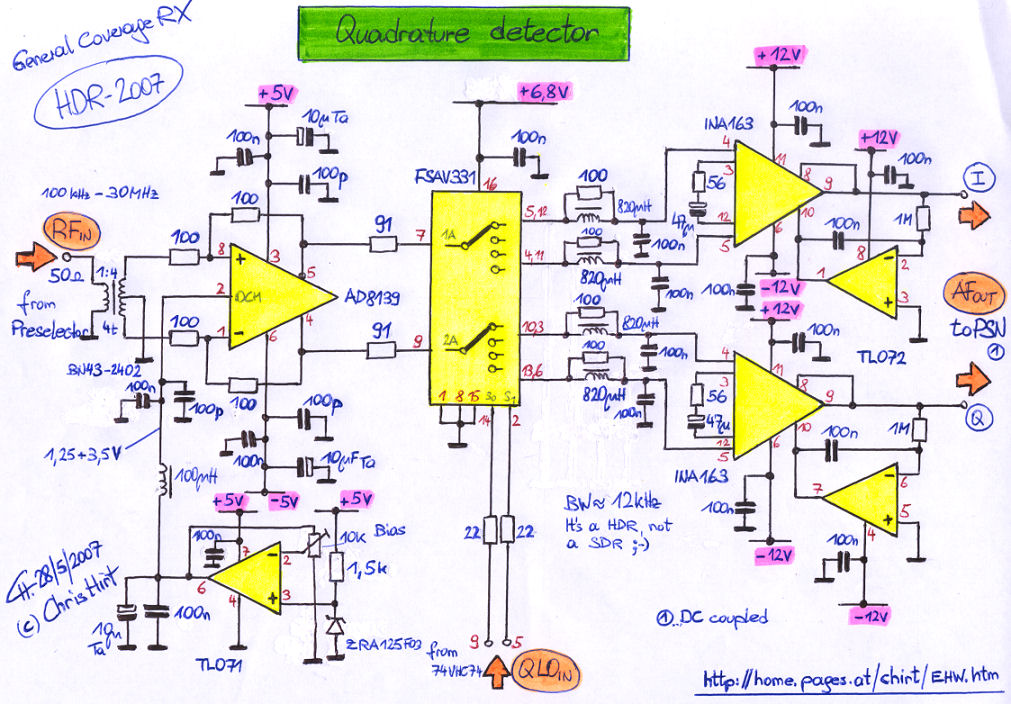 General Coverage RX
HDR-2007
Quadrature detector
100kHz - 30MHz
RF IN
50Ω
from
Preselector
1:4
4t
BN43-2402
100
100
100
100
8
2
1
3
5
4
6
+
-
OCM
AD8139
+5V
100n
10µ Ta
100p
100p
100n
10µF Ta
-5V
91
91
100n
100p
1,25÷3,5V
100µH
+5V
100n
7
6
4
2
3
-
+
TL071
10µ
Ta
100n
+5V
10k
Bias
1,5k
ZRA125F03
CH. 28/5/2007
(c) Chris Hint
+6,8V
100n
FSAV331
16
7
1A
9
2A
5,12
4,11
10,3
13,6
1 8 15 S0 S1
14 2
22
22
9 5
from
74VHC74
QLO IN
100
820µH
100n
100
820µH
100n
100
820µH
100n
100
820µH
100n
+12V
100n
INA163
4
3
56
47µ
12
5
11
8
9
10
6
100n
-12V
+12V
100n
I
1M
100n
1
8
2
3
-
+
TL072
AF OUT
to PSN
①
+12V
100n
4
3
56
47µ
12
5
11
8
9
10
6
INA163
100n
-12V
Q
1M
100n
7
6
5
4
-
+
100n
-12V
BW≈12kHz
It's a HDR, not
a SDR ;-)
①..DC coupled
http://home.pages.at/chirt/EHW.htm